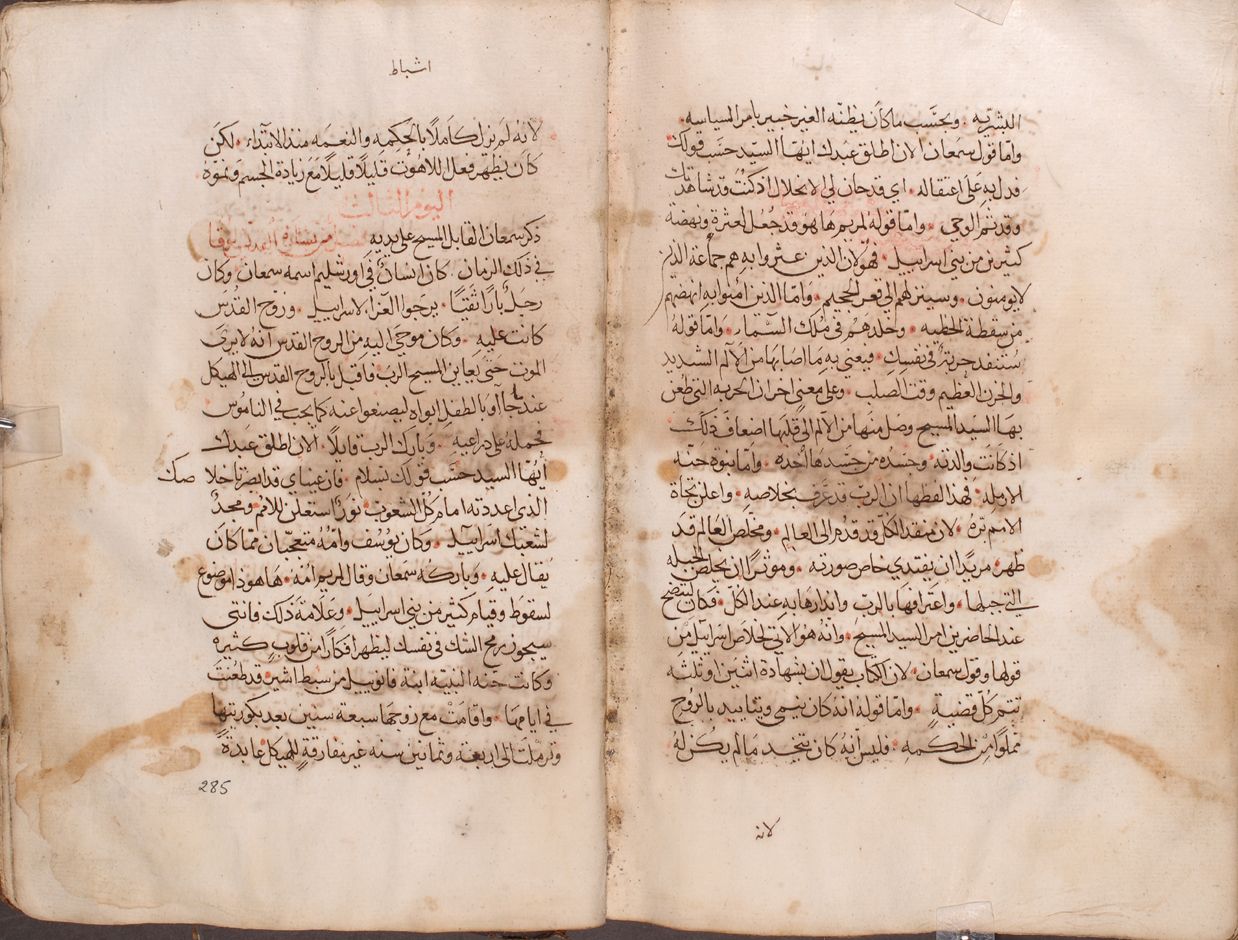 البشريه · وبحسب ماكان يظنه الغير خبير بامر السياسه ·
واما قول سمعان الان اطلق عبدك ايها السيد حسب قولك
فدل به على اعتقاله · اي قد حان لي الانحلال اذ كنت قد شاهدتك
وقد تم الوحي · واما قوله لمريم ها هو قد جعل لعثرة ونهضة
كثيرين من بني اسراييل · فهو لان الذين عثروا به هم جماعة الذين
لا يومنون · وسينزلهم الى قعر الجحيم · واما الذين امنوا به انهضهم
من سقطة الخطيه · وخلدهم في ملك السما · واما قوله
ستنفد حربة في نفسك · فيعني به ما اصابها من الالم الشديد
والحزن العظيم وقت الصلب · وعلى معنى اخر ان الحربه التي طعن
بها السيد المسيح وصل منها من الالم الى قلبها اضعاف ذلك ·
اذ كانت والدته · وجسده من جسدها اخده · واما نبوة حنه
الارمله · فهذا لفظها ان الرب قد عرف بخلاصه · واعلن تجاه
الامم بره · لان منقد الكل قد قدم الى العالم · ومخلص العالم قد
ظهر · مريدا ان يفتدي خاص صورته · وموثرا ان يخلص الجبله
التي جبلها · واعترافها بالرب وانذارها به عند الكل · فكان ليتضح
عند الحاضرين امر السيد المسيح · وانه هو الاتي لخلاص اسراييل من
قولها وقول سمعان · لان الكتاب يقول ان بشهادة اثنين او ثلثه
تتم كل قضية · واما قوله انه كان ينمى ويتاييد بالروح
مملوا من الحكمه · فليس انه كان يتخد ما لم يكن له
لانه
اشباط
لانه لم يزل كاملا بالحكمه والنعمه منذ الابتداء · لكن
كان يظهر فعل اللاهوت قليلا قليلا مع زيادة الجسم ونموه
اليوم الثالث
ذكر سمعان القابل المسيح على يديه من بشارة لوقا
في ذلك الزمان · كان انسان في اورشليم اسمه سمعان · وكان
رجل بارا تقيا · يرجوا العزا لاسراييل · وروح القدس
كانت عليه · وكان موحى اليه من الروح القدس انه لا يرى
الموت حتى يعاين المسيح الرب فاقبل بالروح القدس الى الهيكل
عند جا اوبا الطفل ابواه ليصنعوا عنه كما يجب في الناموس
فحمله على دراعيه · وبارك الرب قايلا · الان اطلق عبدك
ايها السيد حسب قولك بسلام · فان عيناي قد ابصرتا خلاصك
الذي اعددته امام كل الشعوب · نورا استعلن للامم · ومجدا
لشعبك اسراييل · وكان يوسف وامه متعجبان مما كان
يقال عليه · وباركه سمعان وقال لمريم امه · ها هوذا موضوع
لسقوط وقيام كثير من بني اسراييل · وعلامة دلك فانتي
سيجوز رمح الشك في نفسك ليظهر افكارا من قلوب كثيره
وكانت حنه النبيه ابنة فانوييل من سبط اشير · قد طعنت
في ايامها · واقامت مع زوجها سبعة سنين بعد بكوريتها
وترملت الى اربعة وثمانين سنه غير مفارقة للهيكل عابدة
285